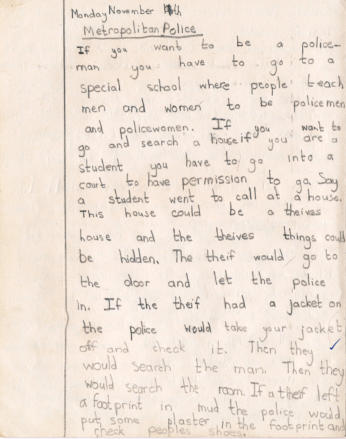 Monday November 11th
Metropolitan Police
If you want to be a police-
man you have to go to a
special school where people teach
men and women to be policemen
and policewomen. If you want to
go and search a house if you are a
student you have to go into a
court to have permission to go. Say
a student went to call at a house.
This house could be a theives
house and the theives things could
be hidden. The theif would go to
the door and let the police
in. If the theif had a jacket on
the police would take your jacket
off and check it. Then they
would search the man. Then they
would search the room. If a theif left
a footprint in mud the police would
put some plaster in the footprint and
check peoples shoes.